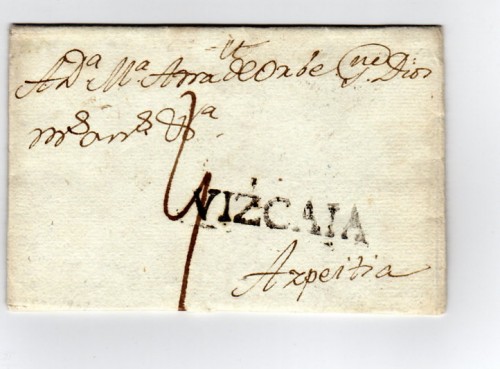 A Dª Mª Ana de Orbe gue Dios
ms ans Vª
VIZCAIA
Azpeitia